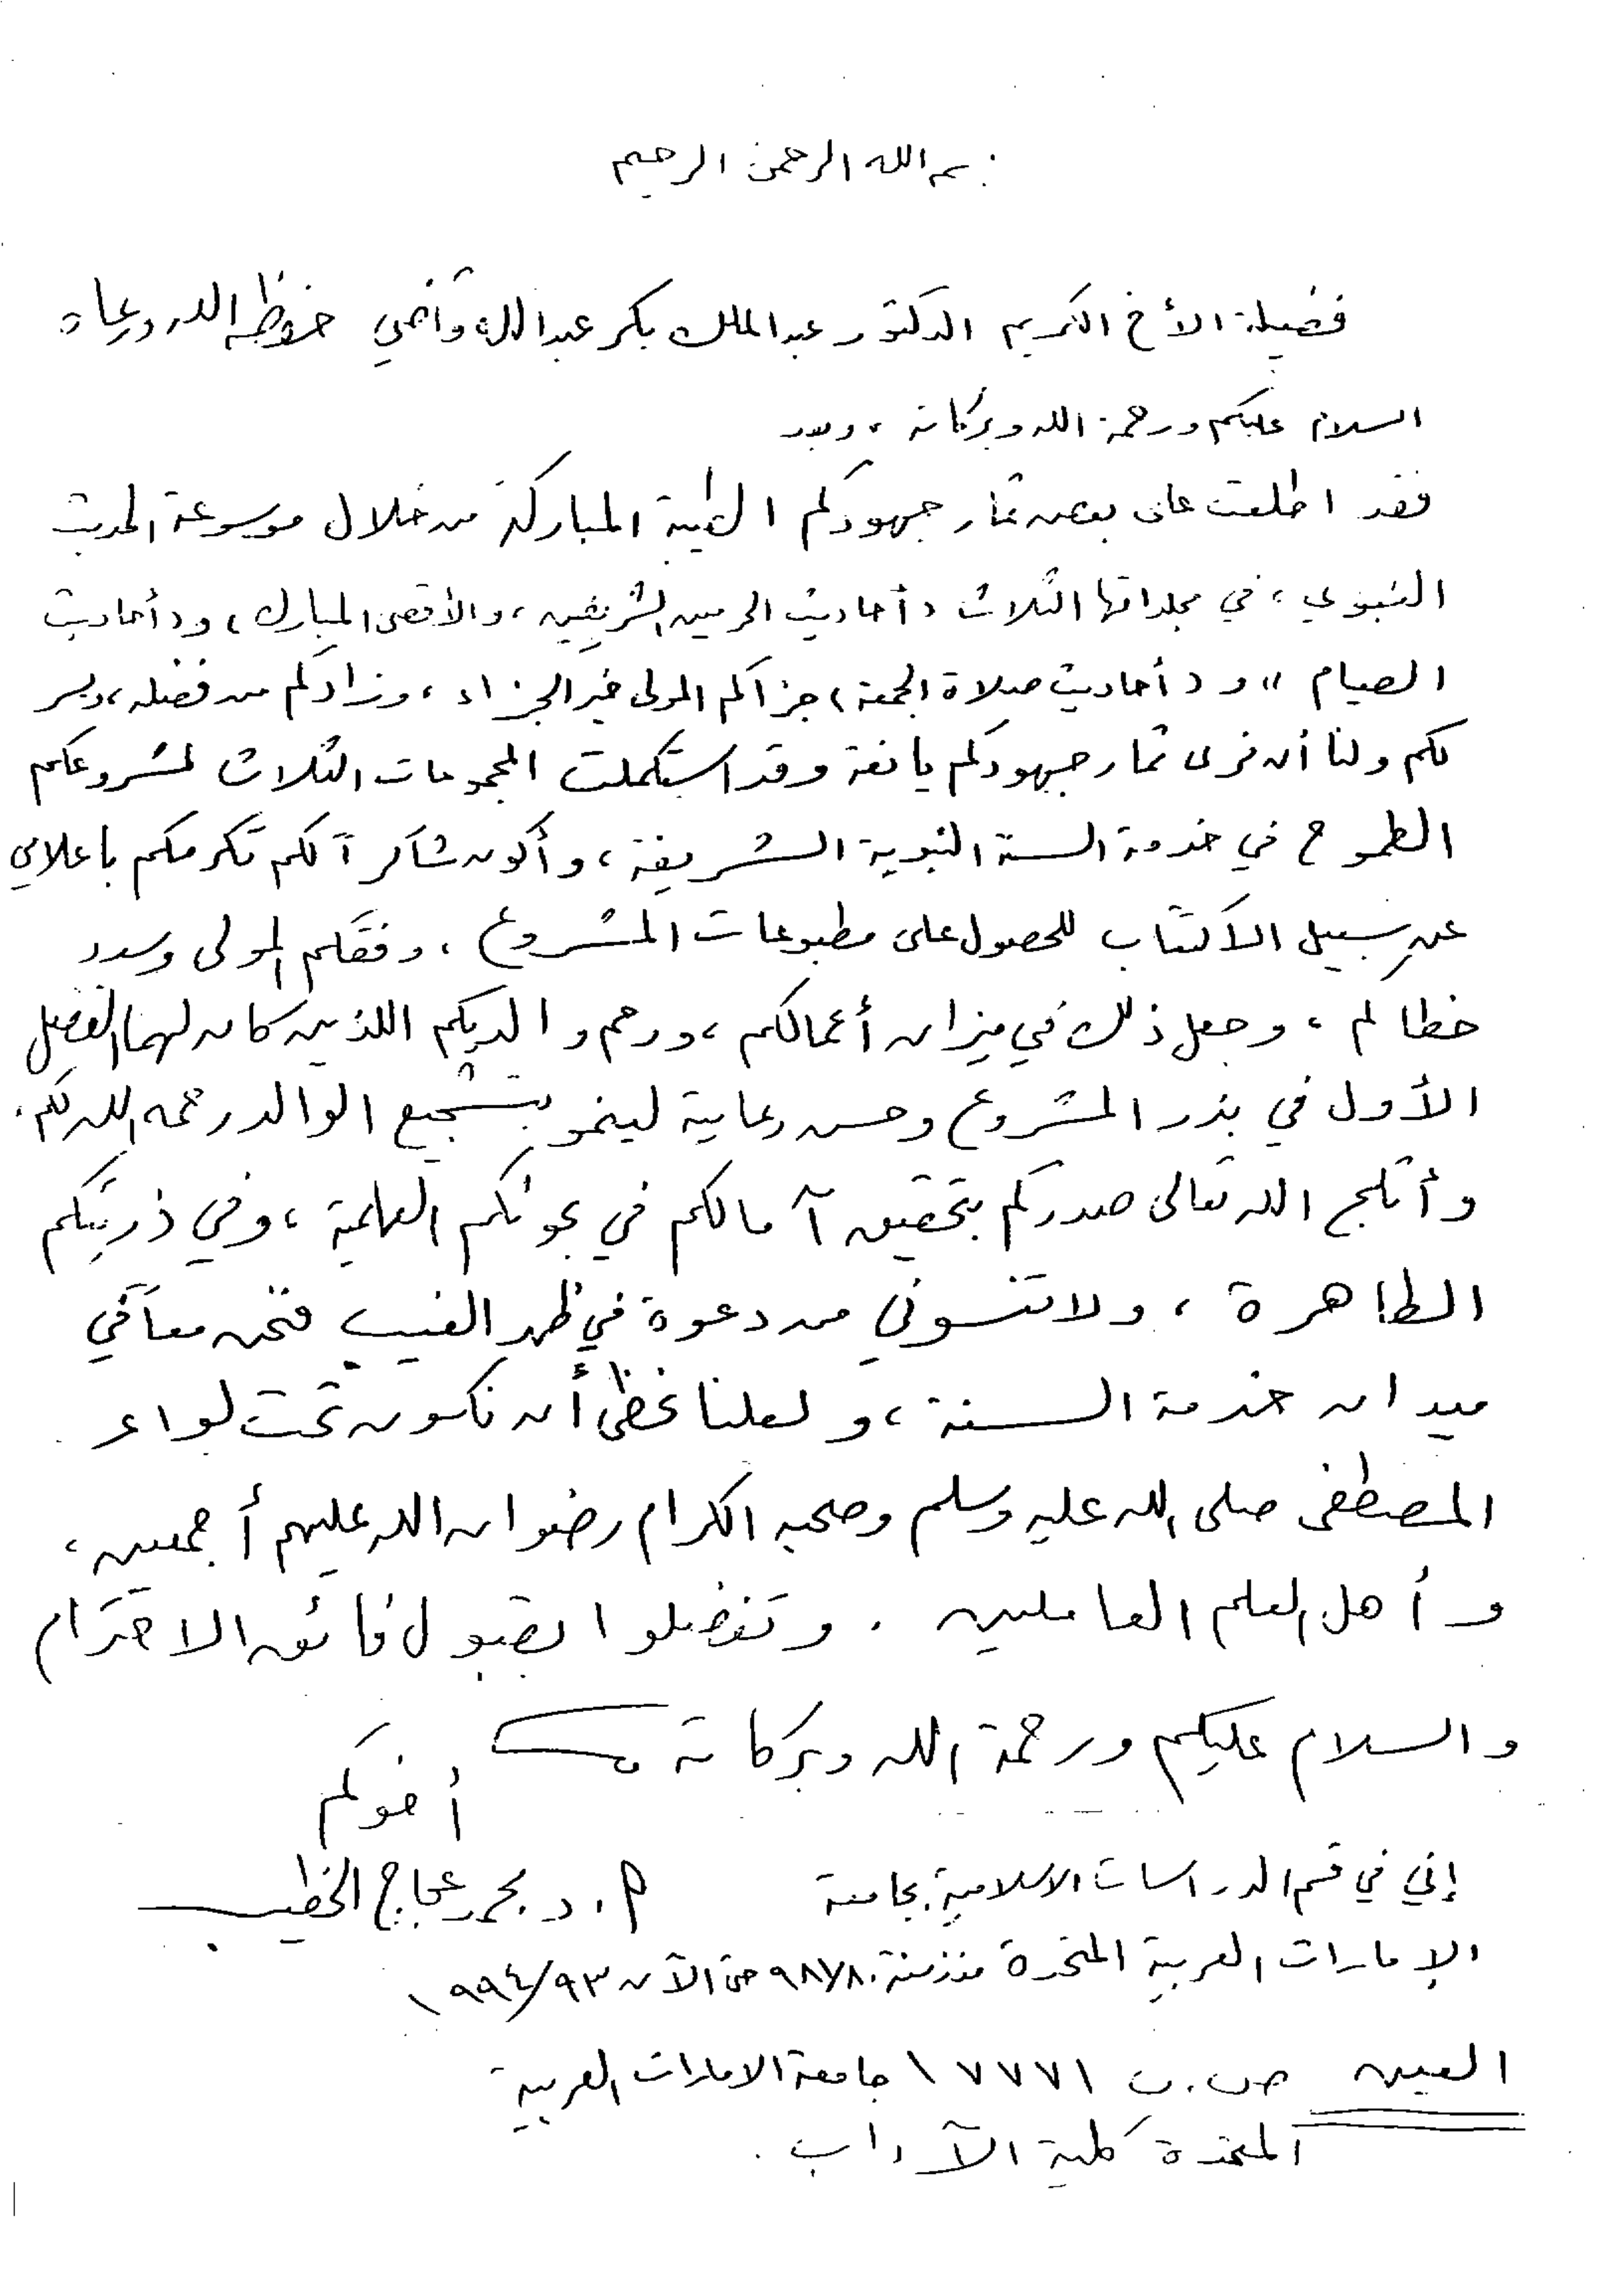 بسم الله الرحمن الرحيم
فضيلة الأخ الكريم الدكتور عبد الملك بكر عبد الله قاضي حفظه الله ورعاه
السلام عليكم ورحمة الله وبركاته ، وبعد
فقد اطلعت على بعض ثمار جهودكم الطيبة المباركة من خلال موسوعة الحديث
النبوي ، في مجلداتها الثلاث ( أحاديث الحرمين الشريفين ، والأقصى المبارك ) و ( أحاديث
الصيام )) و ( أحاديث صلاة الجمعة ) جزاكم المولى خير الجزاء ، وزادكم من فضله ، ويسر
لكم ولنا أن نرى ثمار جهودكم يانعة وقد استكملت المجموعات الثلاث لمشروعكم
الطموح في خدمة السنة النبوية الشريفة ، وأكون شاكراً لكم تكرمكم باعلامي
عن سبيل الاكتتاب للحصول على مطبوعات المشروع ، وفقكم المولى وسدد
خطاكم ، وجعل ذلك في ميزان أعمالكم ، ورحم والديكم اللذين كان لهما الفضل
الأول في بذر المشروع وحسن رعاية لينمو بتشجيع الوالد رحمه الله لكم .
وأثلج الله تعالى صدركم بتحقيق آمالكم في بحوثكم العلمية ، وفي ذريتكم
الطاهرة ، ولا تنسوني من دعوة في ظهر الغيب فنحن معاً في
ميدان خدمة السنة ، ولعلنا نحظى أن نكون تحت لواء
المصطفى صلى الله عليه وسلم وصحبه الكرام رضوان الله عليهم أجمعين ،
وأهل العلم العاملين . وتفضلوا بقبول فائق الاحترام
والسلام عليكم ورحمة الله وبركاته
أخوكم
إني في قسم الدراسات الاسلامية بجامعة
أ . د . محمد عجاج الخطيب
الإمارات العربية المتحدة منذ سنة ٩٨٧/٨٠ حتى الآن ١٩٩٤/٩٣
العين ص . ب ١٧٧٧١ جامعة الامارات العربية
المتحدة كلية الآداب .